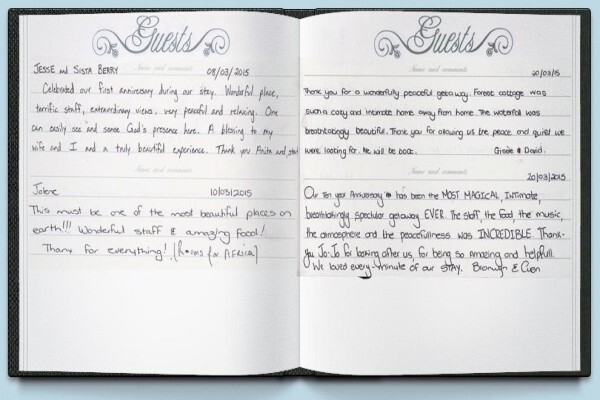 Guests
Name and comments
JESSE and SISTA BERRY 08/03/2015
Celebrated our first anniversary during our stay. Wonderful place,
terrific staff, extraordinary views, very peaceful and relaxing. One
can easily see and sense God's presence here. A blessing to my
wife and I and a truly beautiful experience. Thank you Anita and staff
Name and comments
Jolene 10/03/2015
This must be one of the most beautiful places on
earth!!! Wonderful staff & amazing food!
Thank for everything! (Rooms for AFRICA)
Guests
Name and comments
20/03/15
Thank you for a wonderfully peaceful getaway. Forest cottage was
such a cozy and intimate home away from home. The waterfall was
breathtakingly beautiful. Thank you for allowing us the peace and quiet we
were looking for. We will be back. & David.
Name and comments
20/03/2015
Our ten year Anniversary has been the MOST MAGICAL, Intimate,
breathtakingly, specular getaway EVER. The staff, the food, the music,
the atmosphere and the peacefulness was INCREDIBLE. Thank-
you Jo-Jo for looking after us, for being so amazing and helpfull.
We loved every-minute of our STAY. Bronwyn &